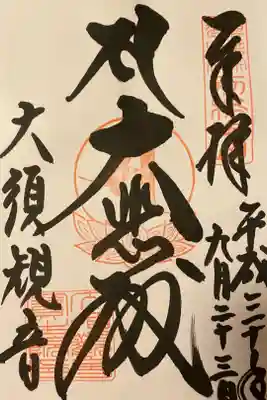 奉拝
平成三十年
六月二十三日
大悲殿
大須観音